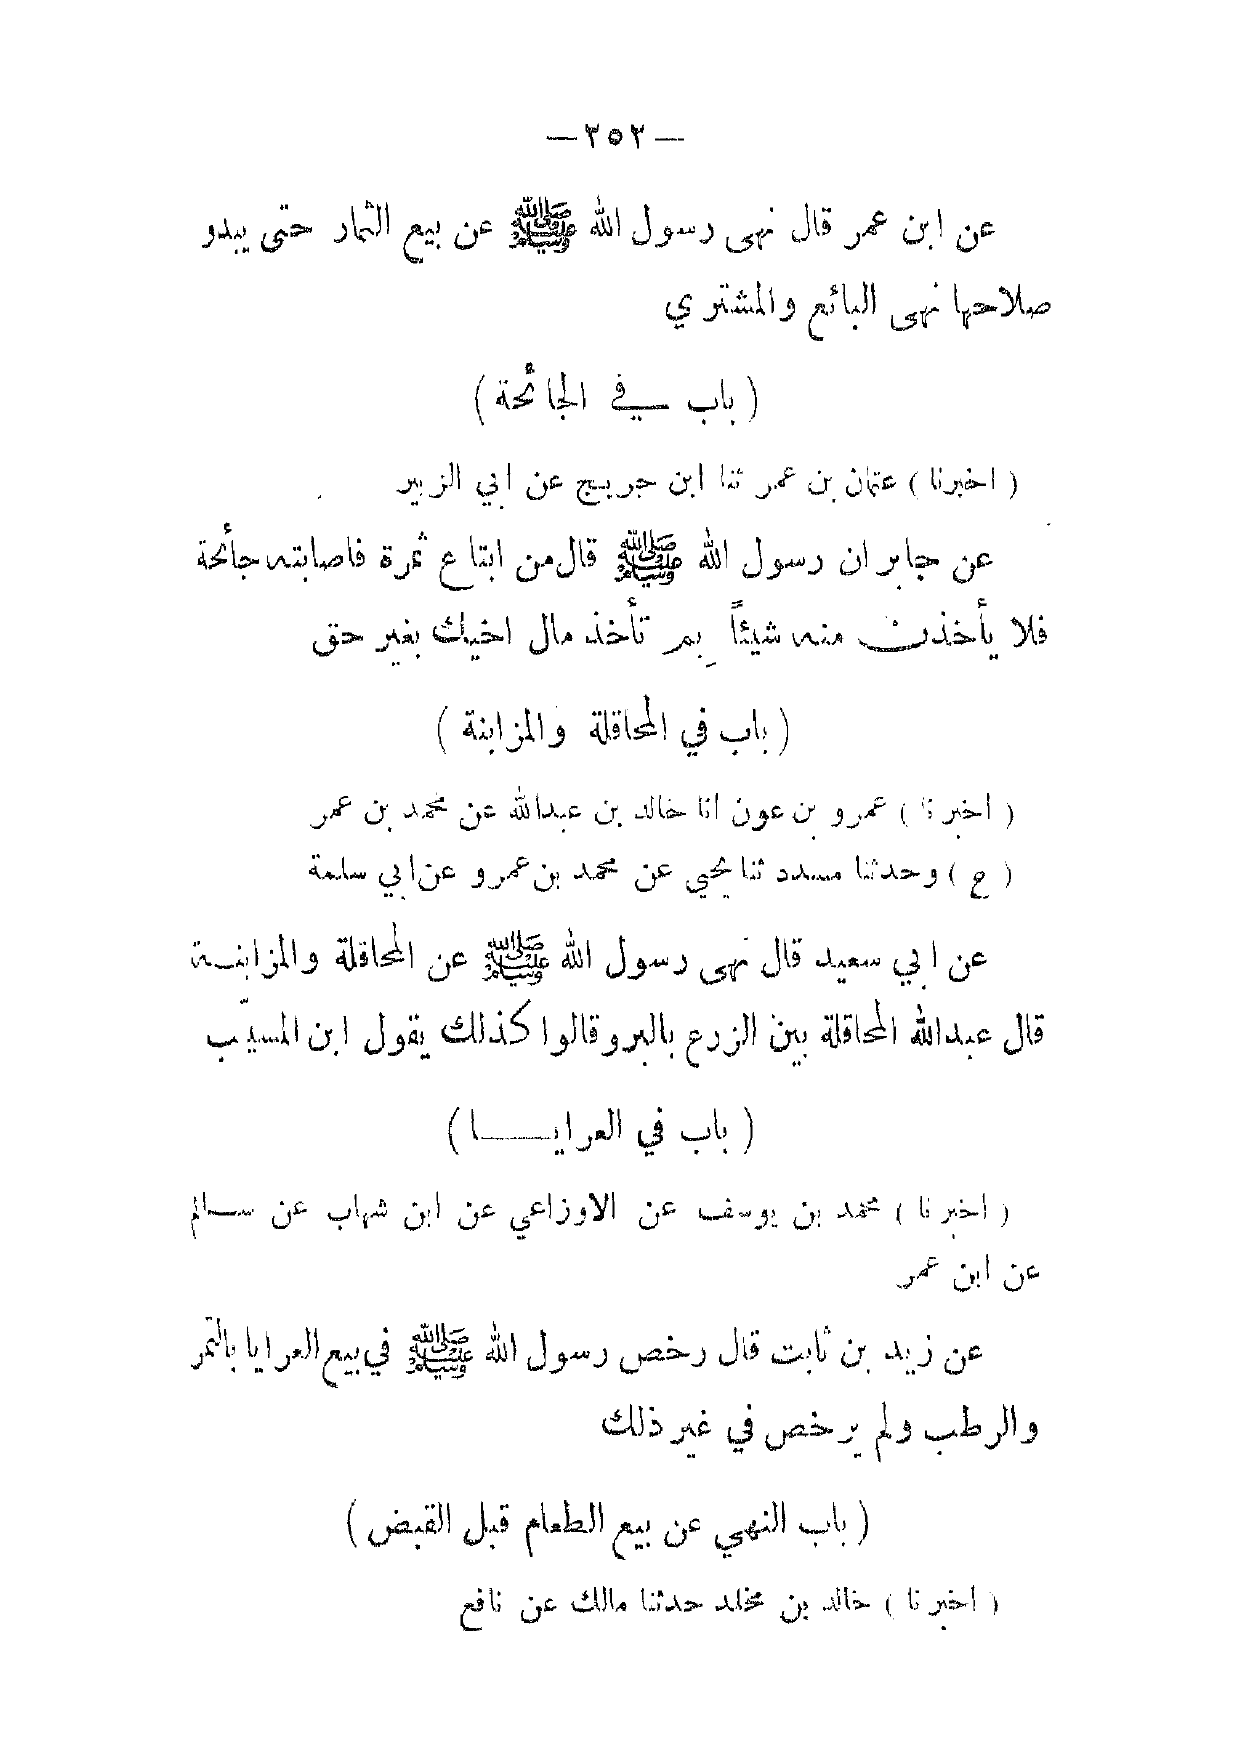 — ٢٥٢ —
عن ابن عمر قال نهى رسول الله ﷺ عن بيع الثمار حتى يبدو
صلاحها نهى البائع والمشتري
( باب في الجائحة )
( اخبرنا ) عثمان بن عمر ثنا ابن جريج عن ابي الزبير
عن جابر ان رسول الله ﷺ قال من ابتاع ثمرة فاصابته جائحة
فلا يأخذن منه شيئاً بم تأخذ مال اخيك بغير حق
( باب في المحاقلة والمزابنة )
( اخبرنا ) عمرو بن عون انا خالد بن عبدالله عن محمد بن عمر
( ح ) وحدثنا مسدد ثنا يحيى عن محمد بن عمرو عن ابي سلمة
عن ابي سعيد قال نهى رسول الله ﷺ عن المحاقلة والمزابنة
قال عبدالله المحاقلة بين الزرع بالبر وقالوا كذلك يقول ابن المسيّب
( باب في العرايا )
( اخبرنا ) محمد بن يوسف عن الاوزاعي عن ابن شهاب عن سالم
عن ابن عمر
عن زيد بن ثابت قال رخص رسول الله ﷺ في بيع العرايا بالتمر
والرطب ولم يرخص في غير ذلك
( باب النهي عن بيع الطعام قبل القبض )
( اخبرنا ) خالد بن مخلد حدثنا مالك عن نافع